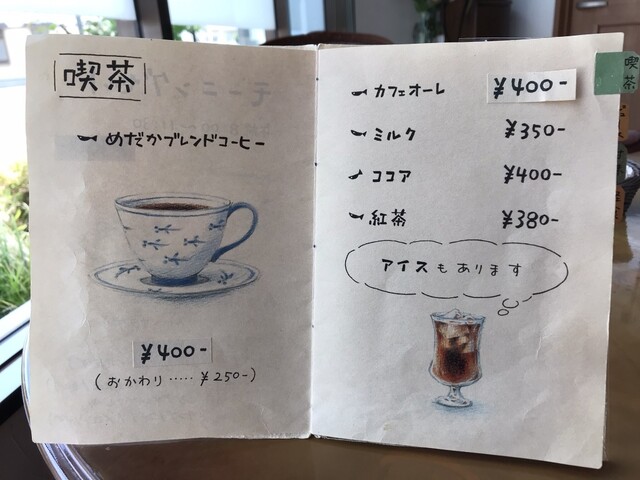 喫茶
めだかブレンドコーヒー
¥400-
(おかわり‥‥‥¥250-)
カフェオーレ ¥400-
ミルク ¥350-
ココア ¥400-
紅茶 ¥380-
アイスもあります
喫茶